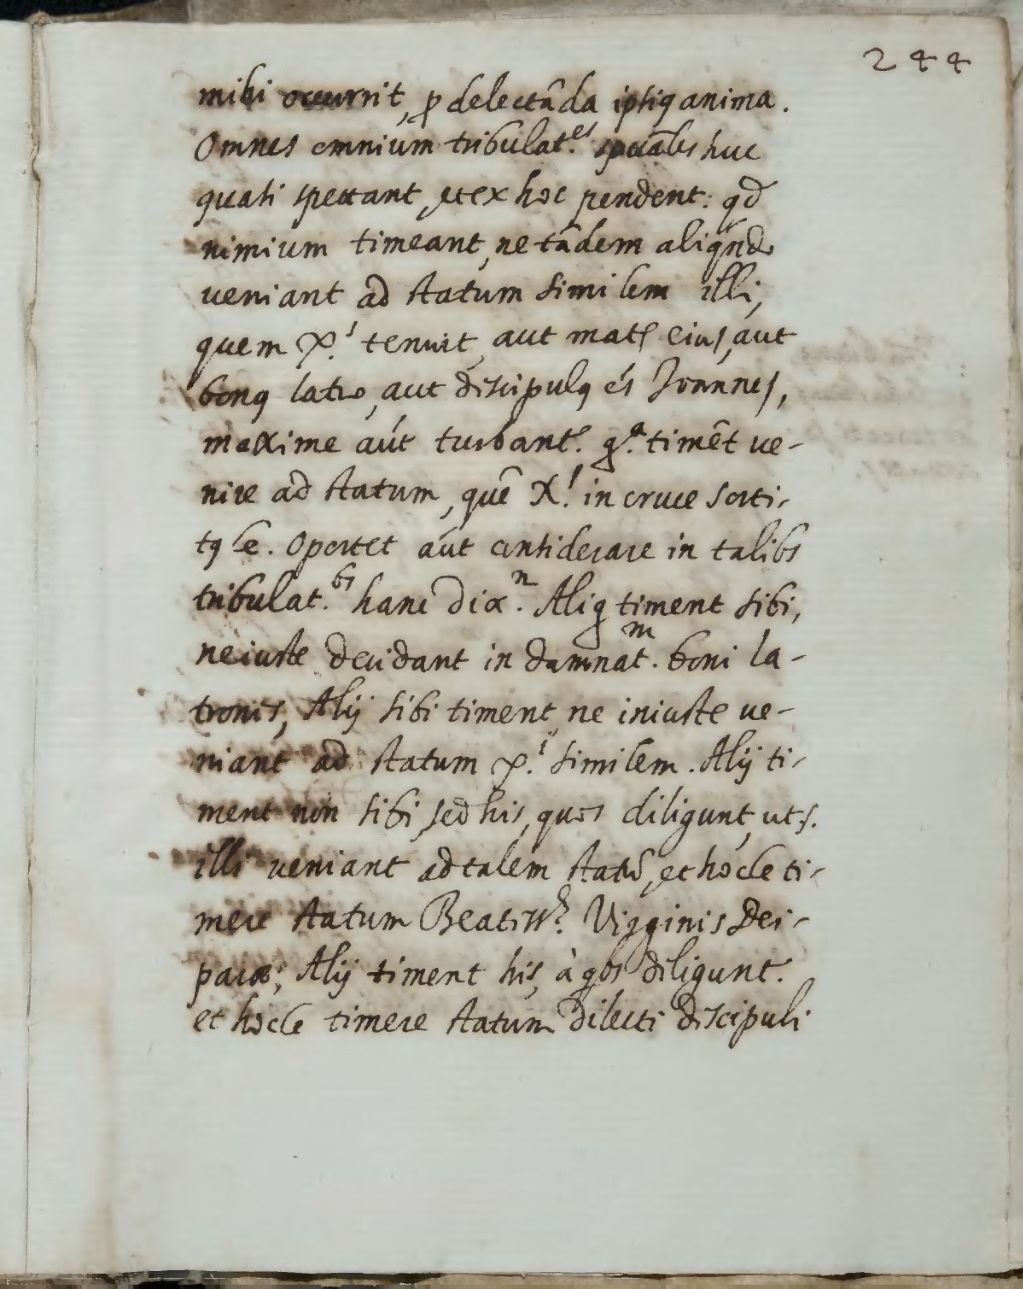 244
mihi occurrit, ꝑ delectāda ipsiꝰ anima.
Omnes omnium tribulat.es spūales huc
quasi spectant, et ex hoc pendent: qd
nimium timeant, ne tādem aliqn̄do
veniant ad statum similem illi,
quem X.s tenuit, aut mat.r eius, aut
bonꝰ latro, aut discipulꝰ eiꝰ Joannes,
maxime aūt turbant.r q.a timēt ve-
nire ad statum, quē X.s in cruce sorti-
tꝰ ē. Oportet aūt considerare in talibs
tribulat.bs hanc dirx.n Aliq timent sibi,
ne iuste decidant in damnat.m boni la-
tronis, Alij sibi timent, ne iniuste ve-
niant ad statum X.i similem. Alij ti-
ment non sibi, sed his, quos diligunt, ut s.
illi veniant ad talem statū, et hoc ē ti-
mere statum Beatiss.ę Virginis Dei-
paræ; Alij timent his, à qbs diligunt.r
et hoc ē timere statum dilecti discipuli